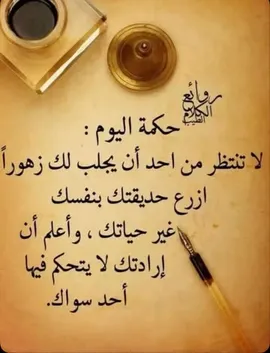 روائع
الكلام
الطيب
حكمة اليوم :
لا تنتظر من احد أن يجلب لك زهوراً
ازرع حديقتك بنفسك
غير حياتك ، وأعلم أن
إرادتك لا يتحكم فيها
أحد سواك.